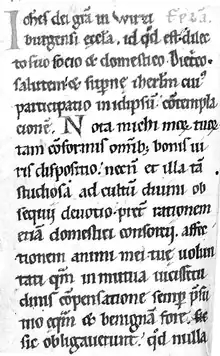 Iohes dei gra in Wirzi
burgensi eccla. id qd est dilec
to suo socio & domestico Dietrico.
salutem & supne iherlm cui'
participatio in idipsu contempla
cione. Nota michi
tam coformis omib; bonis ui
ris dispositio. necn et illa ta
studiosa. ad cultum diuini ob
sequii deuotio. pret rationem
etia domestici consortii. affec
tionem animi mei tue uolun
tati qm in mutua uicissitu
dinis cpensatione semp
qm & benigna fore
sic obligauerunt. qd nulla